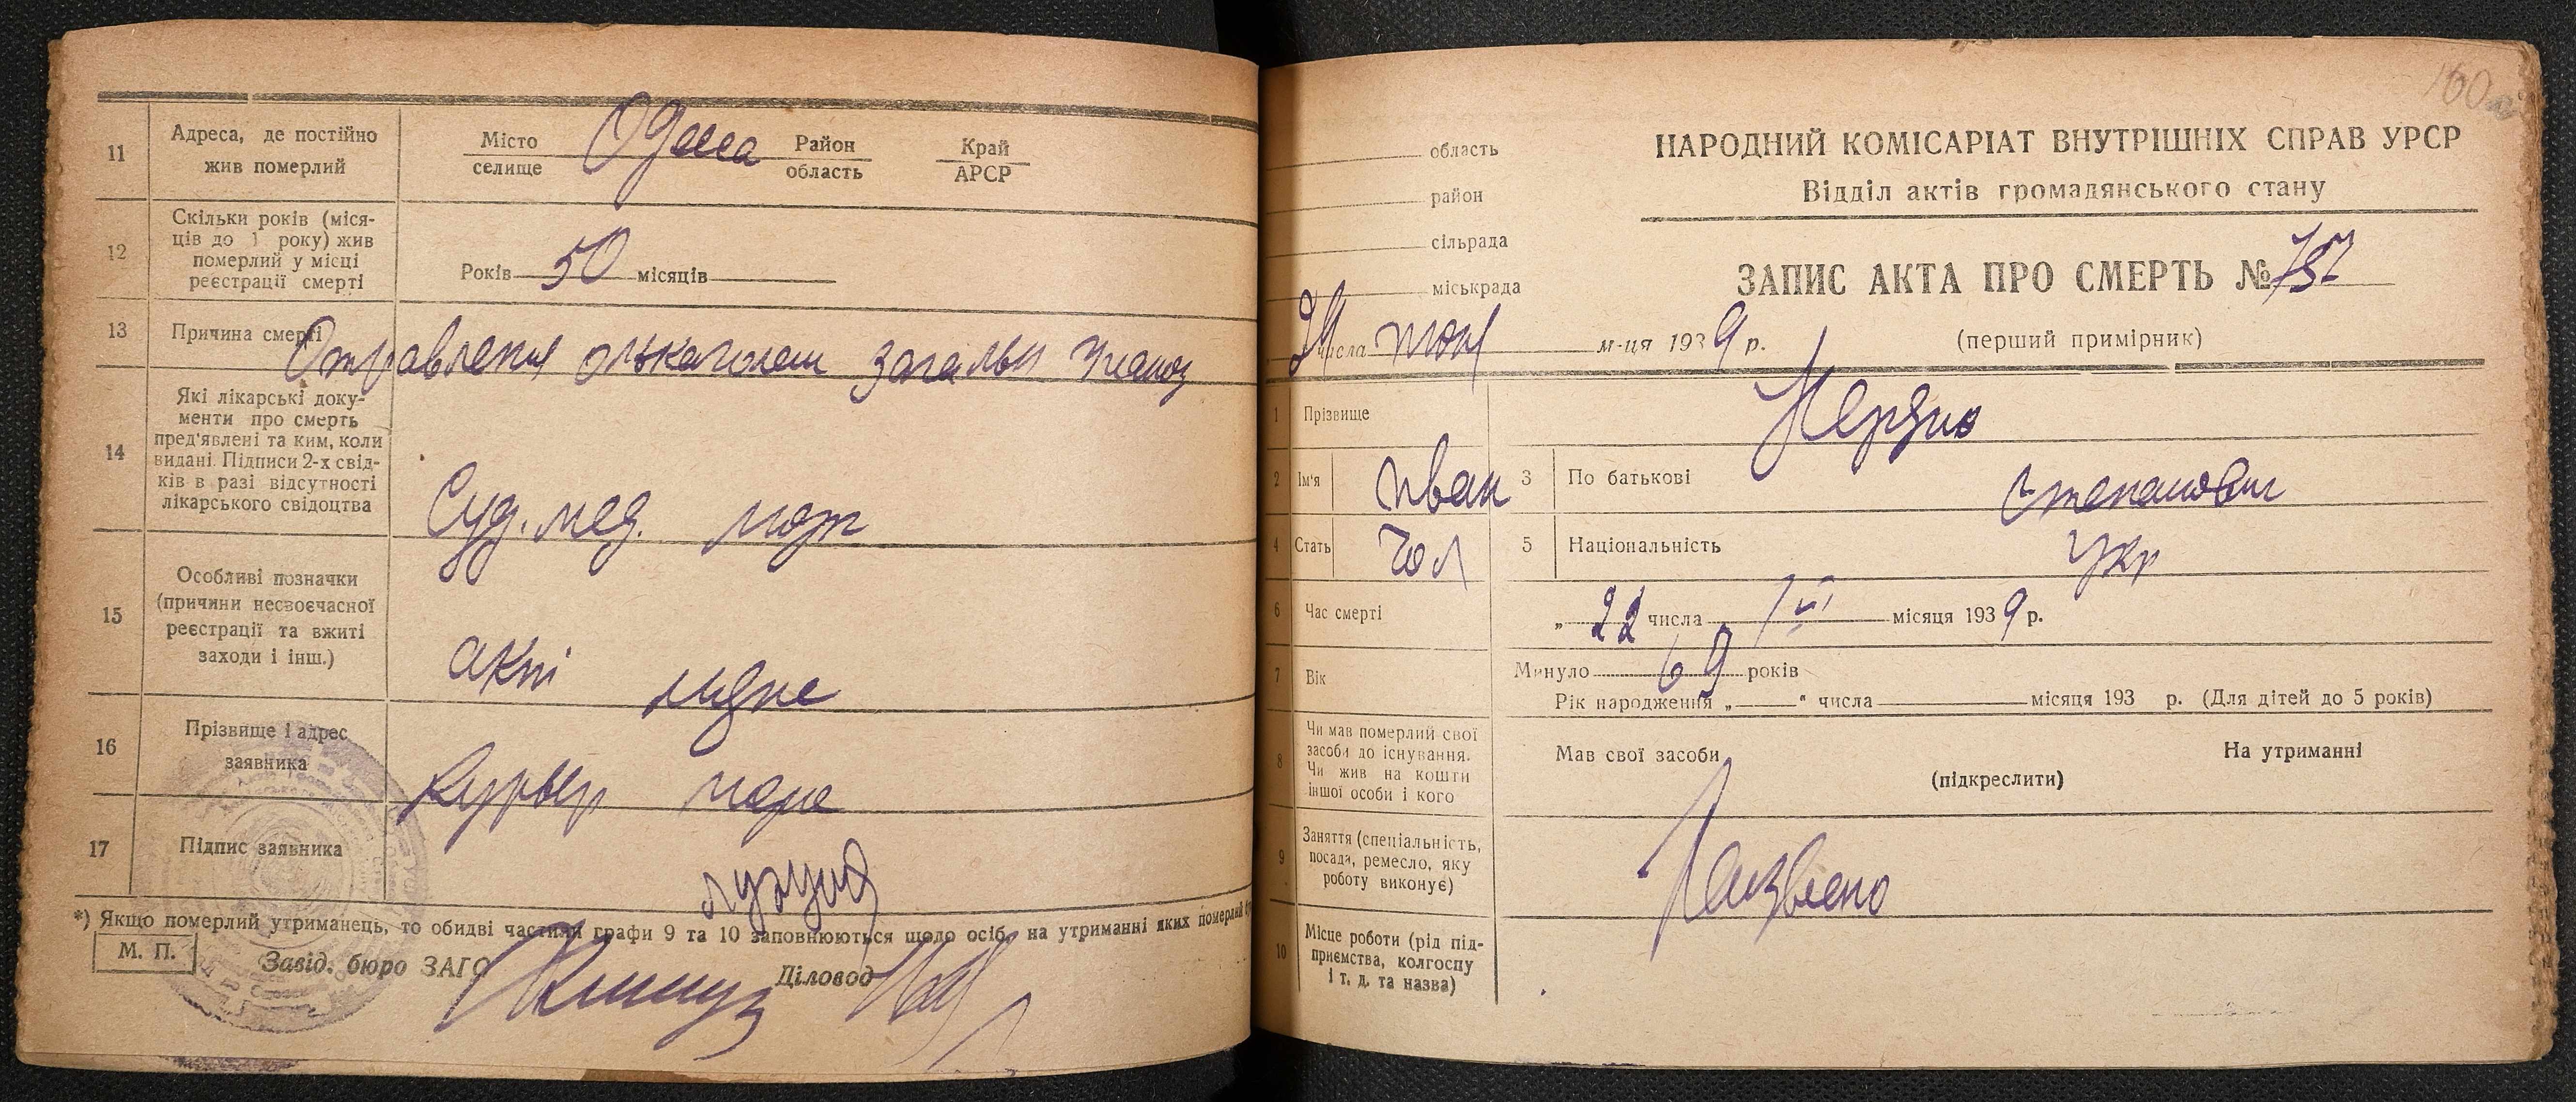 11
Адреса, де постійно
жив померлий
Місто
селище
Одесса
Район
область
Край
АРСР
12
Скільки років (міся-
ців до 1 року) жив
померлий у місці
реєстрації смерті
Років 50 місяців
13
Причина смерті
Отравления алькаголем загальн
14
Які лікарські доку-
менти про смерть
пред'явлені та ким, коли
видані. Підписи 2-х свід-
ків в разі відсутності
лікарського свідоцтва
Суд. мед. морг
15
Особливі позначки
(причини несвоєчасної
реєстрації та вжиті
заходи і інш.)
акт
16
Прізвище і адрес
заявника
Курьер морга
17
Підпис заявника
*) Якщо померлий утриманець, то обидві частини графи 9 та 10 заповнюються щодо осіб, на утриманні яких померлий
М. П.
Завід. бюро ЗАГС
Діловод
160
область
район
сільрада
міськрада
24 числа м-ця 1939 р.
НАРОДНИЙ КОМІСАРІАТ ВНУТРІШНІХ СПРАВ УРСР
Відділ актів громадянського стану
ЗАПИС АКТА ПРО СМЕРТЬ № 757
(перший примірник)
1
Прізвище
2
Ім'я
Иван
3
По батькові
Степанович
4
Стать
Чол
5
Національність
Укр
6
Час смерті
„ 22 числа місяця 1939 р.
7
Вік
Минуло 69 років
Рік народження „ “ числа місяця 193 р. (Для дітей до 5 років)
8
Чи мав померлий свої
засоби до існування.
Чи жив на кошти
іншої особи і кого
Мав свої засоби
(підкреслити)
На утриманні
9
Заняття (спеціальність,
посада, ремесло, яку
роботу виконує)
10
Місце роботи (рід під-
приємства, колгоспу
і т. д. та назва)